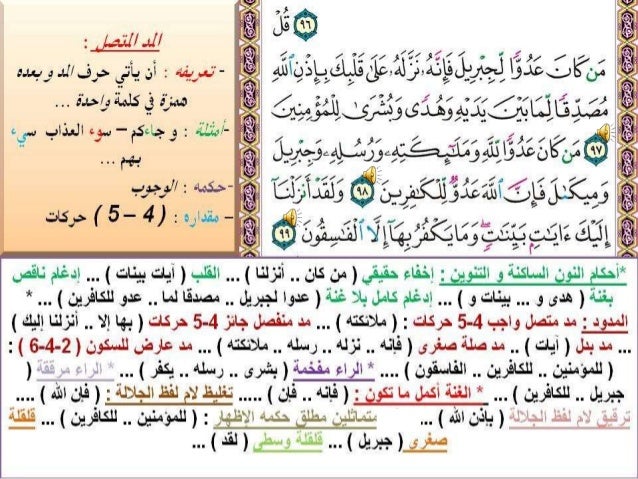 المد المتصل :
- تعريفه : أن يأتي حرف المد و بعده
همزة في كلمة واحدة ...
-أمثلة : و جاءكم – سوء العذاب سيء
بهم ...
-حكمه : الوجوب
– مقداره : ( 4 – 5 ) حركات
٩٦ قُلْ
مَن كَانَ عَدُوًّا لِّجِبْرِيلَ فَإِنَّهُۥ نَزَّلَهُۥ عَلَىٰ قَلْبِكَ بِإِذْنِ ٱللَّهِ
مُصَدِّقًا لِّمَا بَيْنَ يَدَيْهِ وَهُدًى وَبُشْرَىٰ لِلْمُؤْمِنِينَ
٩٧ مَن كَانَ عَدُوًّا لِّلَّهِ وَمَلَـٰٓئِكَتِهِۦ وَرُسُلِهِۦ وَجِبْرِيلَ
وَمِيكَىٰلَ فَإِنَّ ٱللَّهَ عَدُوٌّ لِّلْكَـٰفِرِينَ ٩٨ وَلَقَدْ أَنزَلْنَآ
إِلَيْكَ ءَايَـٰتٍۭ بَيِّنَـٰتٍ ۖ وَمَا يَكْفُرُ بِهَآ إِلَّا ٱلْفَـٰسِقُونَ ٩٩
*أحكام النون الساكنة و التنوين : إخفاء حقيقي ( من كان .. أنزلنا ) ... القلب ( آيات بينات ) ... إدغام ناقص
بغنة ( هدى و ... بينات و ) ... إدغام كامل بلا غنة ( عدوا لجبريل .. مصدقا لما .. عدو للكافرين ) ... *
المدود : مد متصل واجب 4-5 حركات : ( ملائكته ) ... مد منفصل جائز 4-5 حركات ( بها إلا .. أنزلنا إليك )
... مد بدل ( آيات ) .. مد صلة صغرى ( فإنه .. نزله .. رسله .. ملائكته ) ... مد عارض للسكون ( 2-4-6 ) :
( للمؤمنين .. للكافرين .. الفاسقون ) .... * الراء مفخمة ( بشرى .. رسله .. يكفر ) ... * الراء مرققة (
جبريل .. للكافرين ) ... * الغنة أكمل ما تكون : ( فإنه .. فإن ) ..... تغليظ لام لفظ الجلالة : ( فإن الله ) ....
ترقيق لام لفظ الجلالة ( بإذن الله ) ... متماثلين مطلق حكمه الإظهار : ( للمؤمنين .. للكافرين ) ... قلقلة
صغرى ( جبريل ) ... قلقلة وسطى ( لقد ) ...